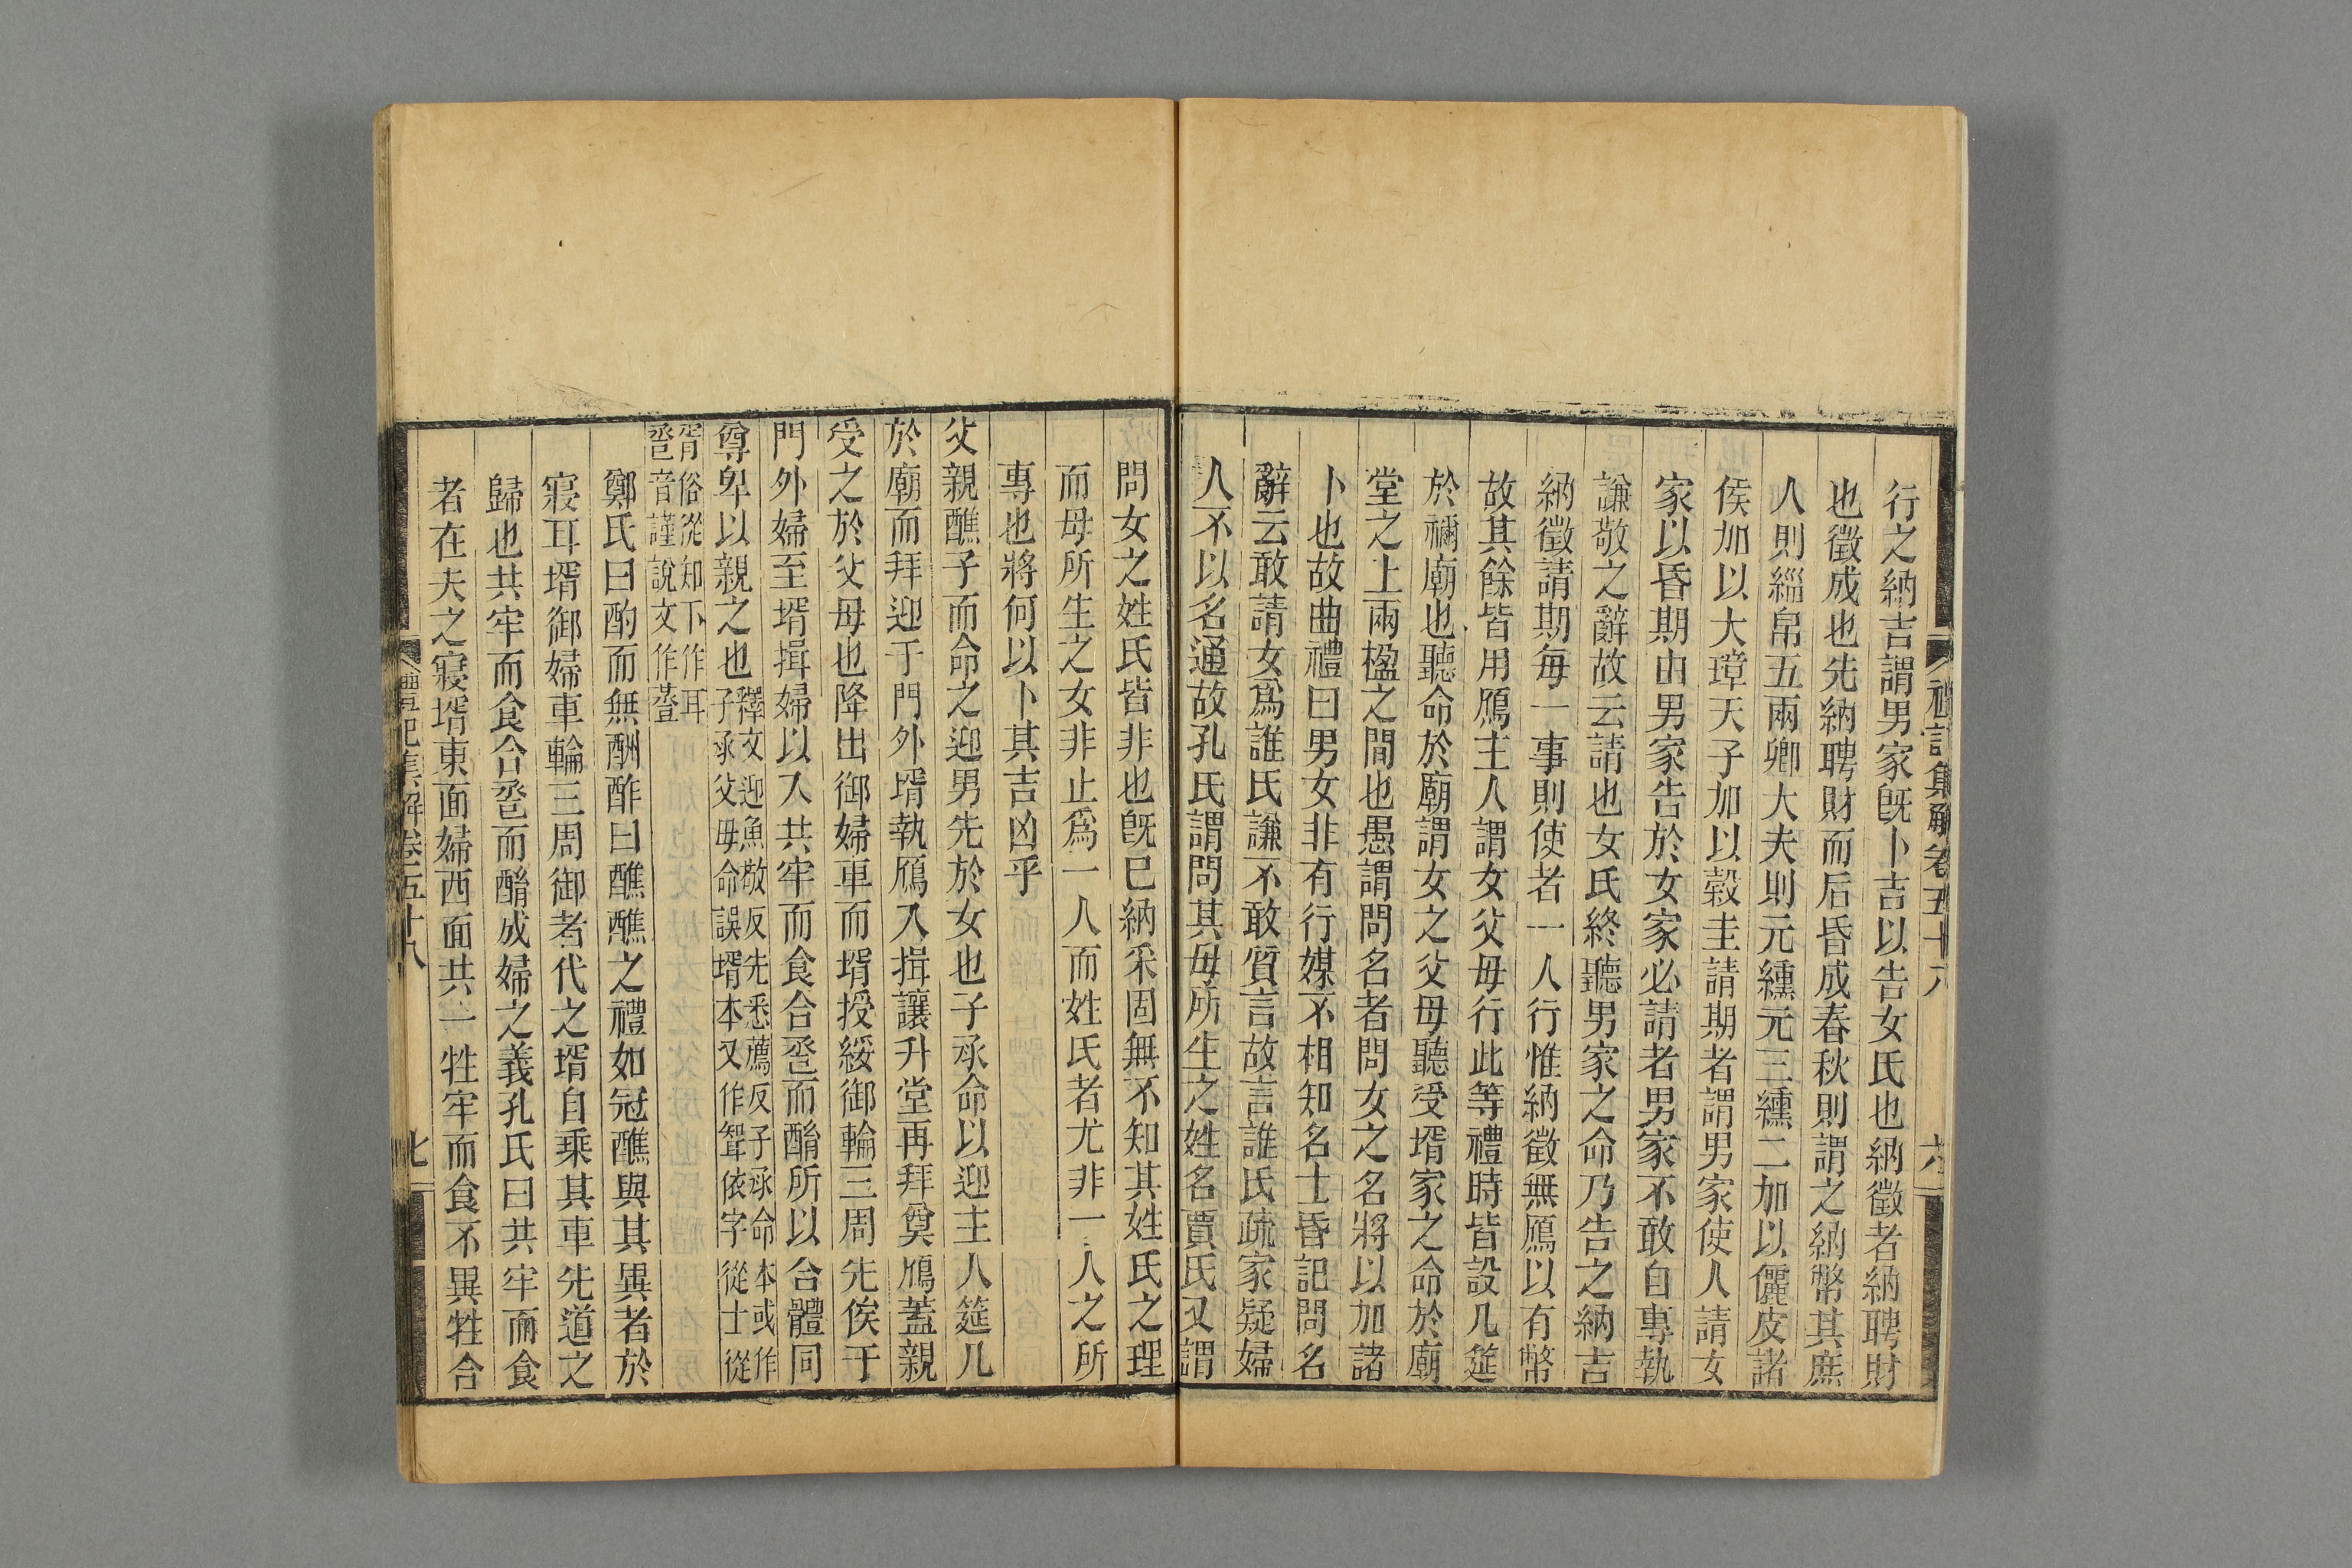 禮記集解卷五十八 六
行之納吉謂男家旣卜吉以告女氏也納徵者納聘財
也徵成也先納聘財而后昏成春秋則謂之納幣其庶
人則緇帛五兩卿大夫則元纁元三纁二加以儷皮諸
侯加以大璋天子加以穀圭請期者謂男家使人請女
家以昏期由男家告於女家必請者男家不敢自專執
謙敬之辭故云請也女氏終聽男家之命乃告之納吉
納徵請期每一事則使者一人行惟納徵無鴈以有幣
故其餘皆用鴈主人謂女父母行此等禮時皆設几筵
於禰廟也聽命於廟謂女之父母聽受壻家之命於廟
堂之上兩楹之間也愚謂問名者問女之名將以加諸
卜也故曲禮曰男女非有行媒不相知名士昏記問名
辭云敢請女爲誰氏謙不敢質言故言誰氏疏家疑婦
人不以名通故孔氏謂問其母所生之姓名賈氏又謂
問女之姓氏皆非也旣已納采固無不知其姓氏之理
而母所生之女非止爲一人而姓氏者尤非一人之所
專也將何以卜其吉凶乎
父親醮子而命之迎男先於女也子承命以迎主人筵几
於廟而拜迎于門外壻執鴈入揖讓升堂再拜奠鴈蓋親
受之於父母也降出御婦車而壻授綏御輪三周先俟于
門外婦至壻揖婦以入共牢而食合卺而酳所以合體同
尊卑以親之也
釋文迎魚敬反先悉薦反子承命本或作
子承父母命誤壻本又作聟依字從士從
胥俗從知下作耳
卺音謹說文作䇐
鄭氏曰酌而無酬酢曰醮醮之禮如冠醮與其異者於
寢耳壻御婦車輪三周御者代之壻自乘其車先道之
歸也共牢而食合卺而酳成婦之義孔氏曰共牢而食
者在夫之寢壻東面婦西面共一牲牢而食不異牲合
禮記集解卷五十八 七